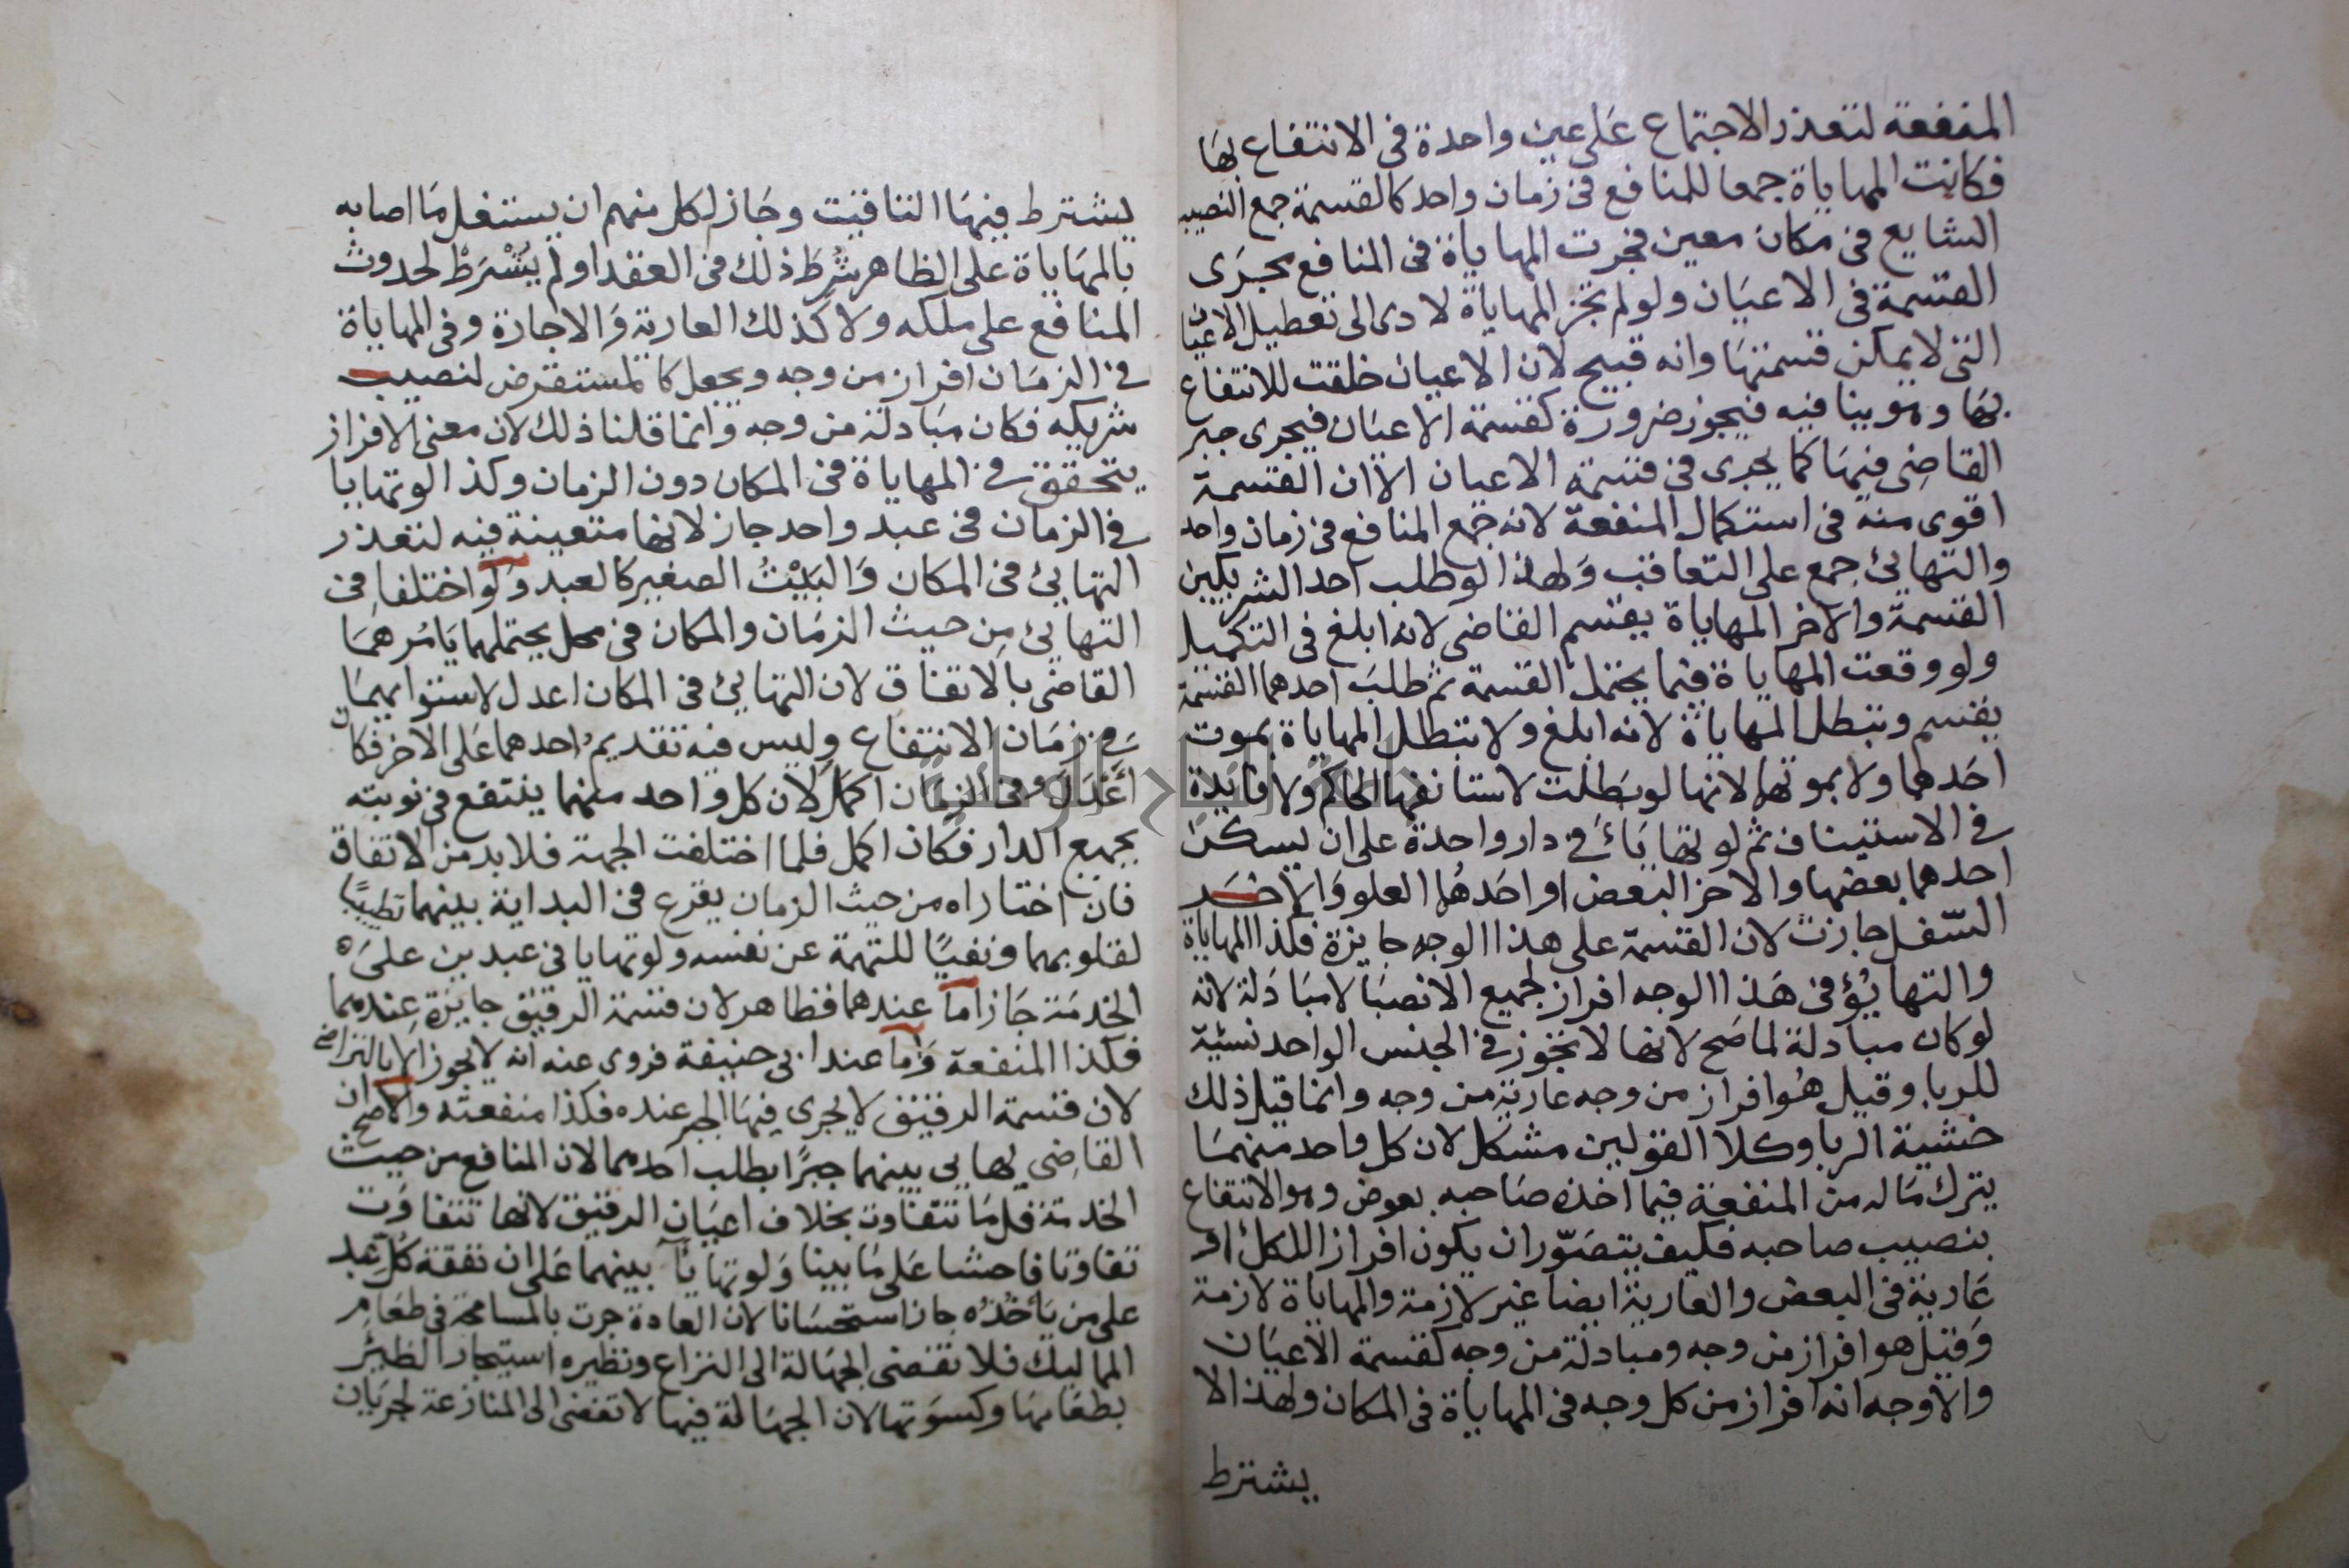 المنفعة لتعذر الاجتماع على عين واحدة فى الانتفاع بها
فكانت المهاياة جمعا للمنافع فى زمان واحد كالقسمة جمع النصيب
الشايع فى مكان معين فجرت المهاياة فى المنافع مجرى
القسمة فى الاعيان ولو لم تجز المهاياة لادى الى تعطيل الاعيان
التى لا يمكن قسمتها وانه قبيح لان الاعيان خلقت للانتفاع
بها وهو ينافيه فيجوز ضرورة كقسمة الاعيان فيجرى جبر
القاضى فيها كما يجرى فى قسمة الاعيان الا ان القسمة
اقوى منه فى استكمال المنفعة لانه جمع المنافع فى زمان واحد
والتهايئ جمع على التعاقب ولهذا لو طلب احد الشريكين
القسمة والاخر المهاياة يقسم القاضى لانه ابلغ فى التكميل
ولو وقعت المهاياة فيما يحتمل القسمة ثم طلب احدهما القسمة
يقسم وتبطل المهاياة لانه ابلغ ولا تبطل المهاياة بموت
احدهما ولا بموتهما لانها لو بطلت لاستانفها الحاكم ولا فايدة
فى الاستيناف ثم لو تهاياء فى دار واحدة على ان يسكن
احدهما بعضها والاخر البعض او احدهما العلو والاخر
السفل جازت لان القسمة على هذا الوجه جايزة فكذا المهاياة
والتهايؤ فى هذا الوجه افراز لجميع الانصبا لا مبادلة لانه
لو كان مبادلة لما صح لانها لا تجوز فى الجنس الواحد نسئية
للربا وقيل هو افراز من وجه عارية من وجه وانما قيل ذلك
خشية الربا وكلا القولين مشكل لان كل واحد منهما
يترك ماله من المنفعة فيما اخذه صاحبه بعوض وهو الانتفاع
بنصيب صاحبه فكيف يتصور ان يكون افرازا للكل او
عارية فى البعض والعارية ايضا غير لازمة والمهاياة لازمة
وقيل هو افراز من وجه ومبادلة من وجه كقسمة الاعيان
والاوجه انه افراز من كل وجه فى المهاياة فى المكان ولهذا لا
يشترط
يشترط فيها التاقيت وجاز لكل منهم ان يستغل ما اصابه
بالمهاياة على الظاهر شرط ذلك فى العقد او لم يشرط لحدوث
المنافع على ملكه ولا كذلك العارية والاجارة وفى المهاياة
فى الزمان افراز من وجه ويجعل كالمستقرض لنصيب
شريكه فكان مبادلة من وجه وانما قلنا ذلك لان معنى الافراز
يتحقق فى المهاياة فى المكان دون الزمان وكذا لو تهايا
فى الزمان فى عبد واحد جاز لانها متعينة فيه لتعذر
التهايئ فى المكان والبيت الصغير كالعبد ولو اختلفا فى
التهايئ من حيث الزمان والمكان فى محل يحتملهما يامرهما
القاضى بالاتفاق لان التهايئ فى المكان اعدل لاستوايهما
فى زمان الانتفاع وليس فيه تقديم احدهما على الاخر فكان
اعدل وفى الزمان اكمل لان كل واحد منهما ينتفع فى نوبته
بجميع الدار فكان اكمل فلما اختلفت الجهة فلا بد من الاتفاق
فان اختاراه من حيث الزمان يقرع فى البداية بينهما تطييبا
لقلوبهما ونفيا للتهمة عن نفسه ولو تهايا فى عبدين على
الخدمة جاز اما عندهما فظاهر لان قسمة الرقيق جايزة عندهما
فكذا المنفعة واما عند ابى حنيفة فروى عنه انه لا يجوز الا بالتراضى
لان قسمة الرقيق لا يجرى فيها الجبر عنده فكذا منفعته والاصح ان
القاضى يهايى بينهما جبرا بطلب احدهما لان المنافع من حيث
الخدمة قل ما تتفاوت بخلاف اعيان الرقيق لانها تتفاوت
تفاوتا فاحشا على ما بينا ولو تهايآ بينهما على ان نفقة كل عبد
على من ياخذه جاز استحسانا لان العادة جرت بالمسامحة فى طعام
المماليك فلا تفضى الجهالة الى النزاع ونظيره استيجار الظئر
بطعامها وكسوتها لان الجهالة فيها لا تفضى الى المنازعة لجريان